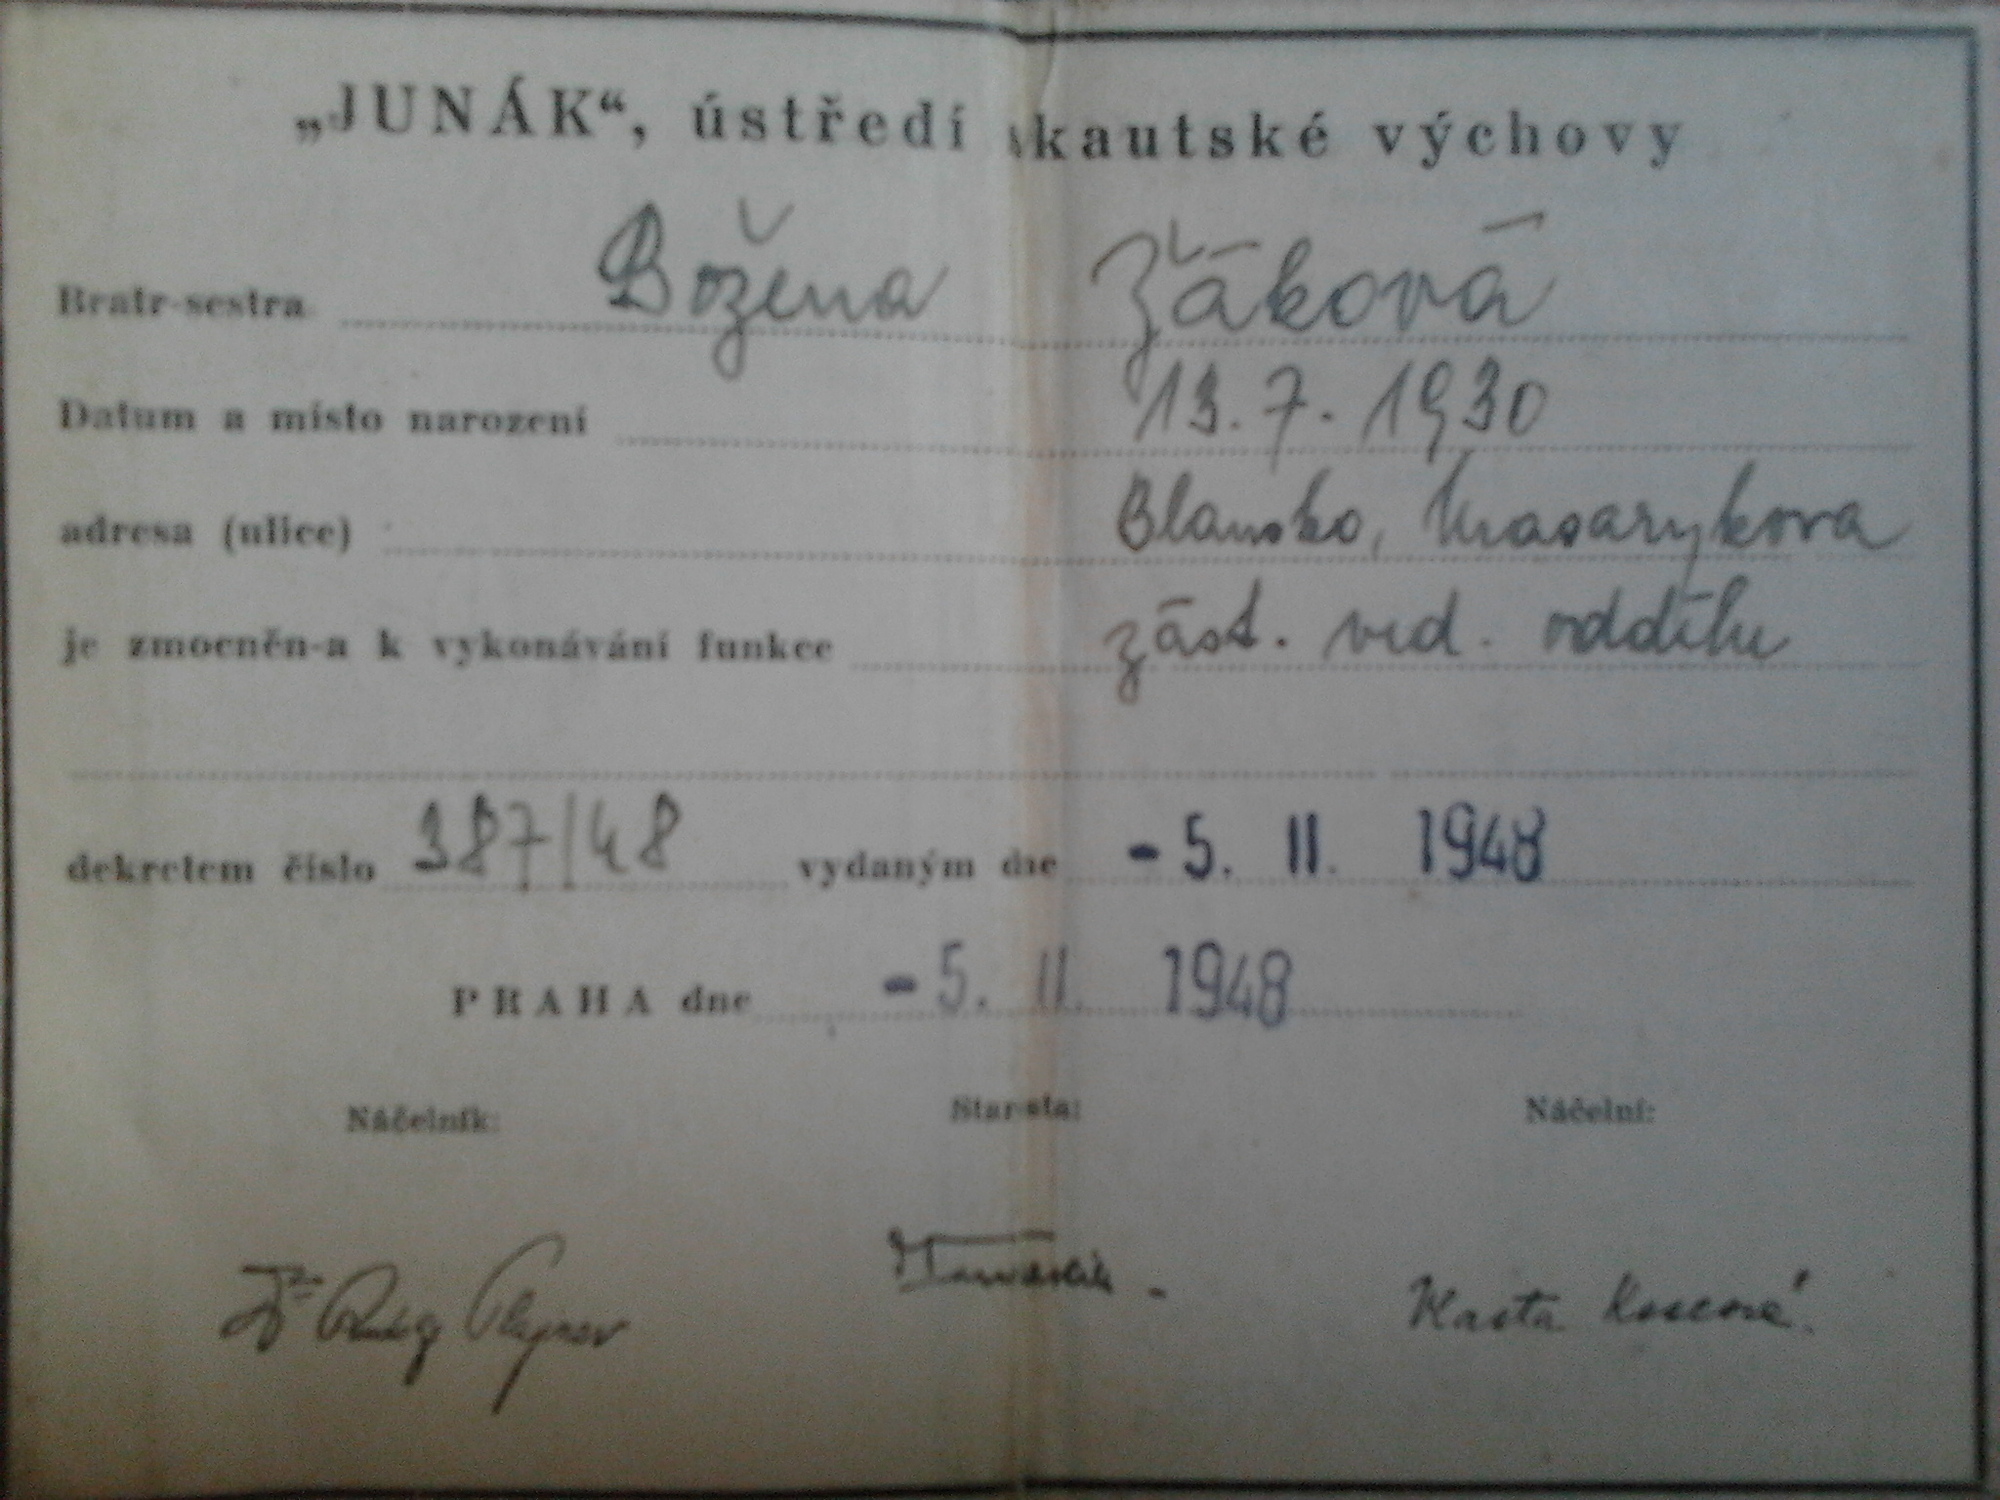 „JUNÁK“, ústředí skautské výchovy
Bratr-sestra Božena Žáková
Datum a místo narození 13. 7. 1930
adresa (ulice) Blansko, Masarykova
je zmocněn-a k vykonávání funkce zást. ved. oddílu
dekretem číslo 387/48 vydaným dne - 5. II. 1948
PRAHA dne - 5. II. 1948
Náčelník: Starosta: Náčelní:
Dr Rudolf Plajner Vlasta Koseová